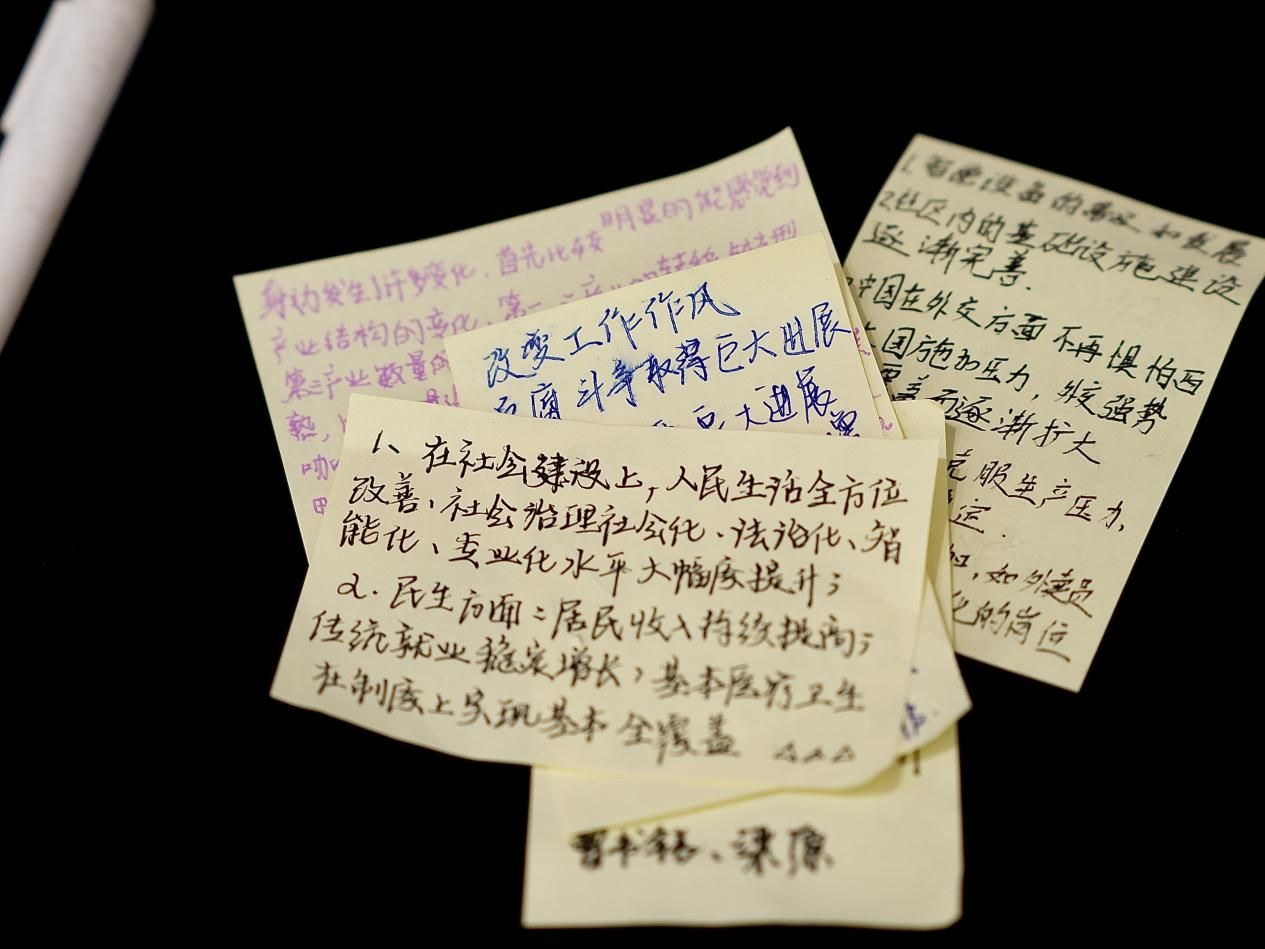 身边发生了许多变化，首先比较明显的能感觉到
产业结构的变化，第一
第三产业数量的
热，
咖
改变工作作风
腐斗争取得巨大进展
巨大进展
1、在社会建设上，人民生活全方位
改善，社会治理社会化、法治化、智
能化、专业化水平大幅度提升；
2. 民生方面：居民收入持续提高；
传统就业稳定增长，基本医疗卫生
在制度上实现基本全覆盖 △△△
1. 智能设备的普及和发展
2.社区内的基础设施建设
逐渐完善.
中国在外交方面不再惧怕西
国施加压力，外交强势
覆盖面逐渐扩大
克服生产压力，
定.
加，如外卖员
化的岗位